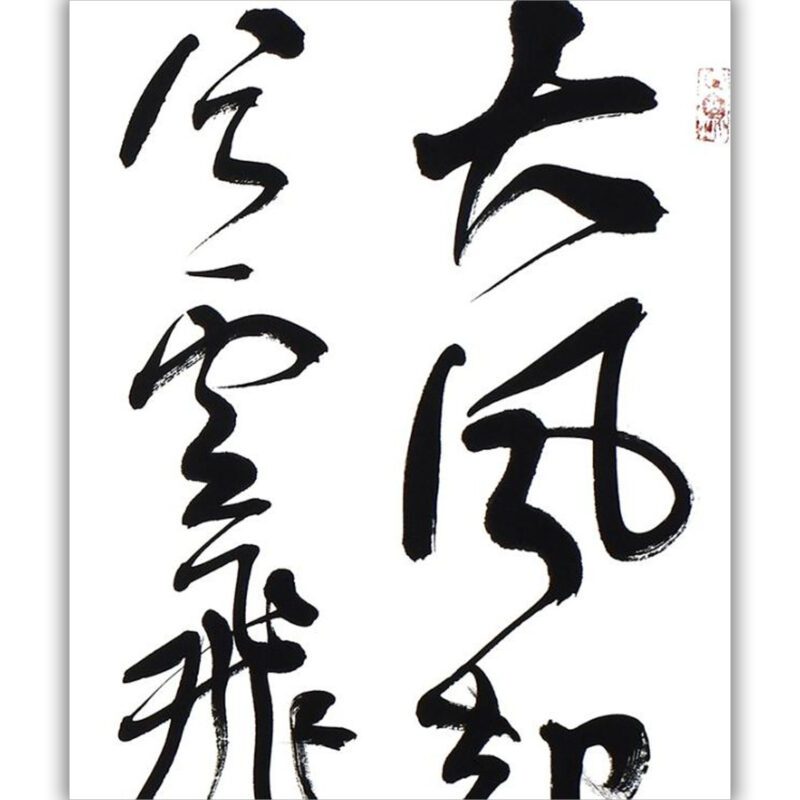 大風起
兮雲飛